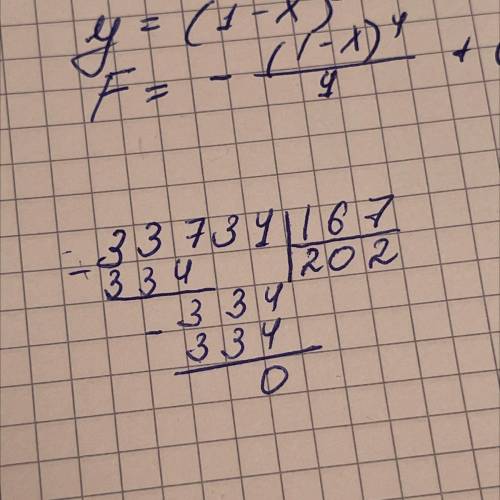 y = (1-x)
F = - (1-x)^4 / 4 + (
- 33734 | 167
334 | 202
- 334
334
0